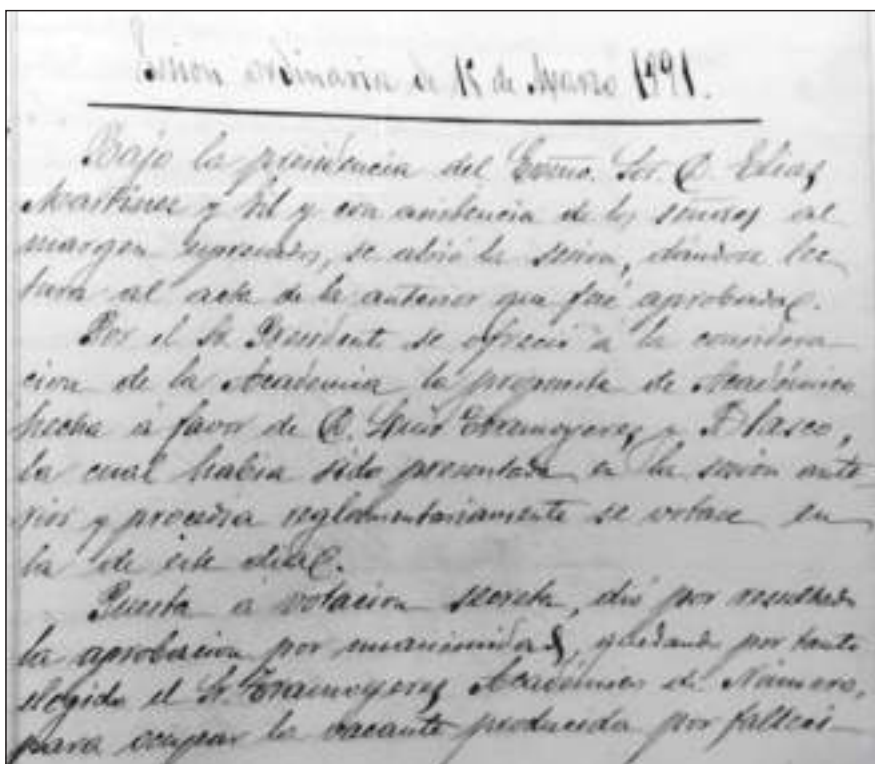 Sesion ordinaria de 15 de Marzo 1891.
Bajo la presidencia del Excmo. Sor. D. Elias
Martinez y Gil y con asistencia de los señores al
margen espresados, se abrió la sesion, dandose lec
tura al acta de la anterior que fué aprobada.
Por el Sr. President se ofreció á la considera
cion de la Academia la propuesta de Académico
hecha á favor de D. Luis Tramoyeres y Blasco,
la cual habia sido presentada en la sesión ante
rior y procedia reglamentariamente se votase en
la de este dia.
Puesta á votacion secreta, dió por resultado
la aprobacion por unanimidad, quedando por tanto
elegido el Sr. Tramoyeres Académico de Número,
para ocupar la vacante producida por falleci